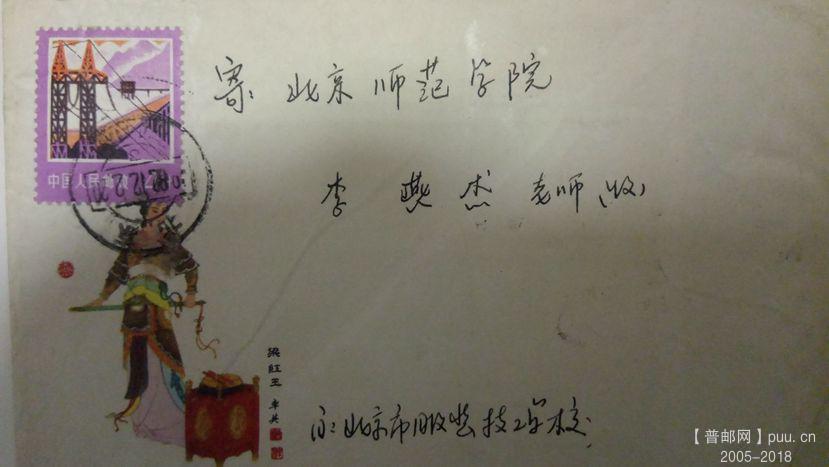 中国人民邮政
寄: 北京师范学院
李燕杰老师(收)
梁红玉
北京市服装技工学校
【普邮网】puu.cn
2005-2018